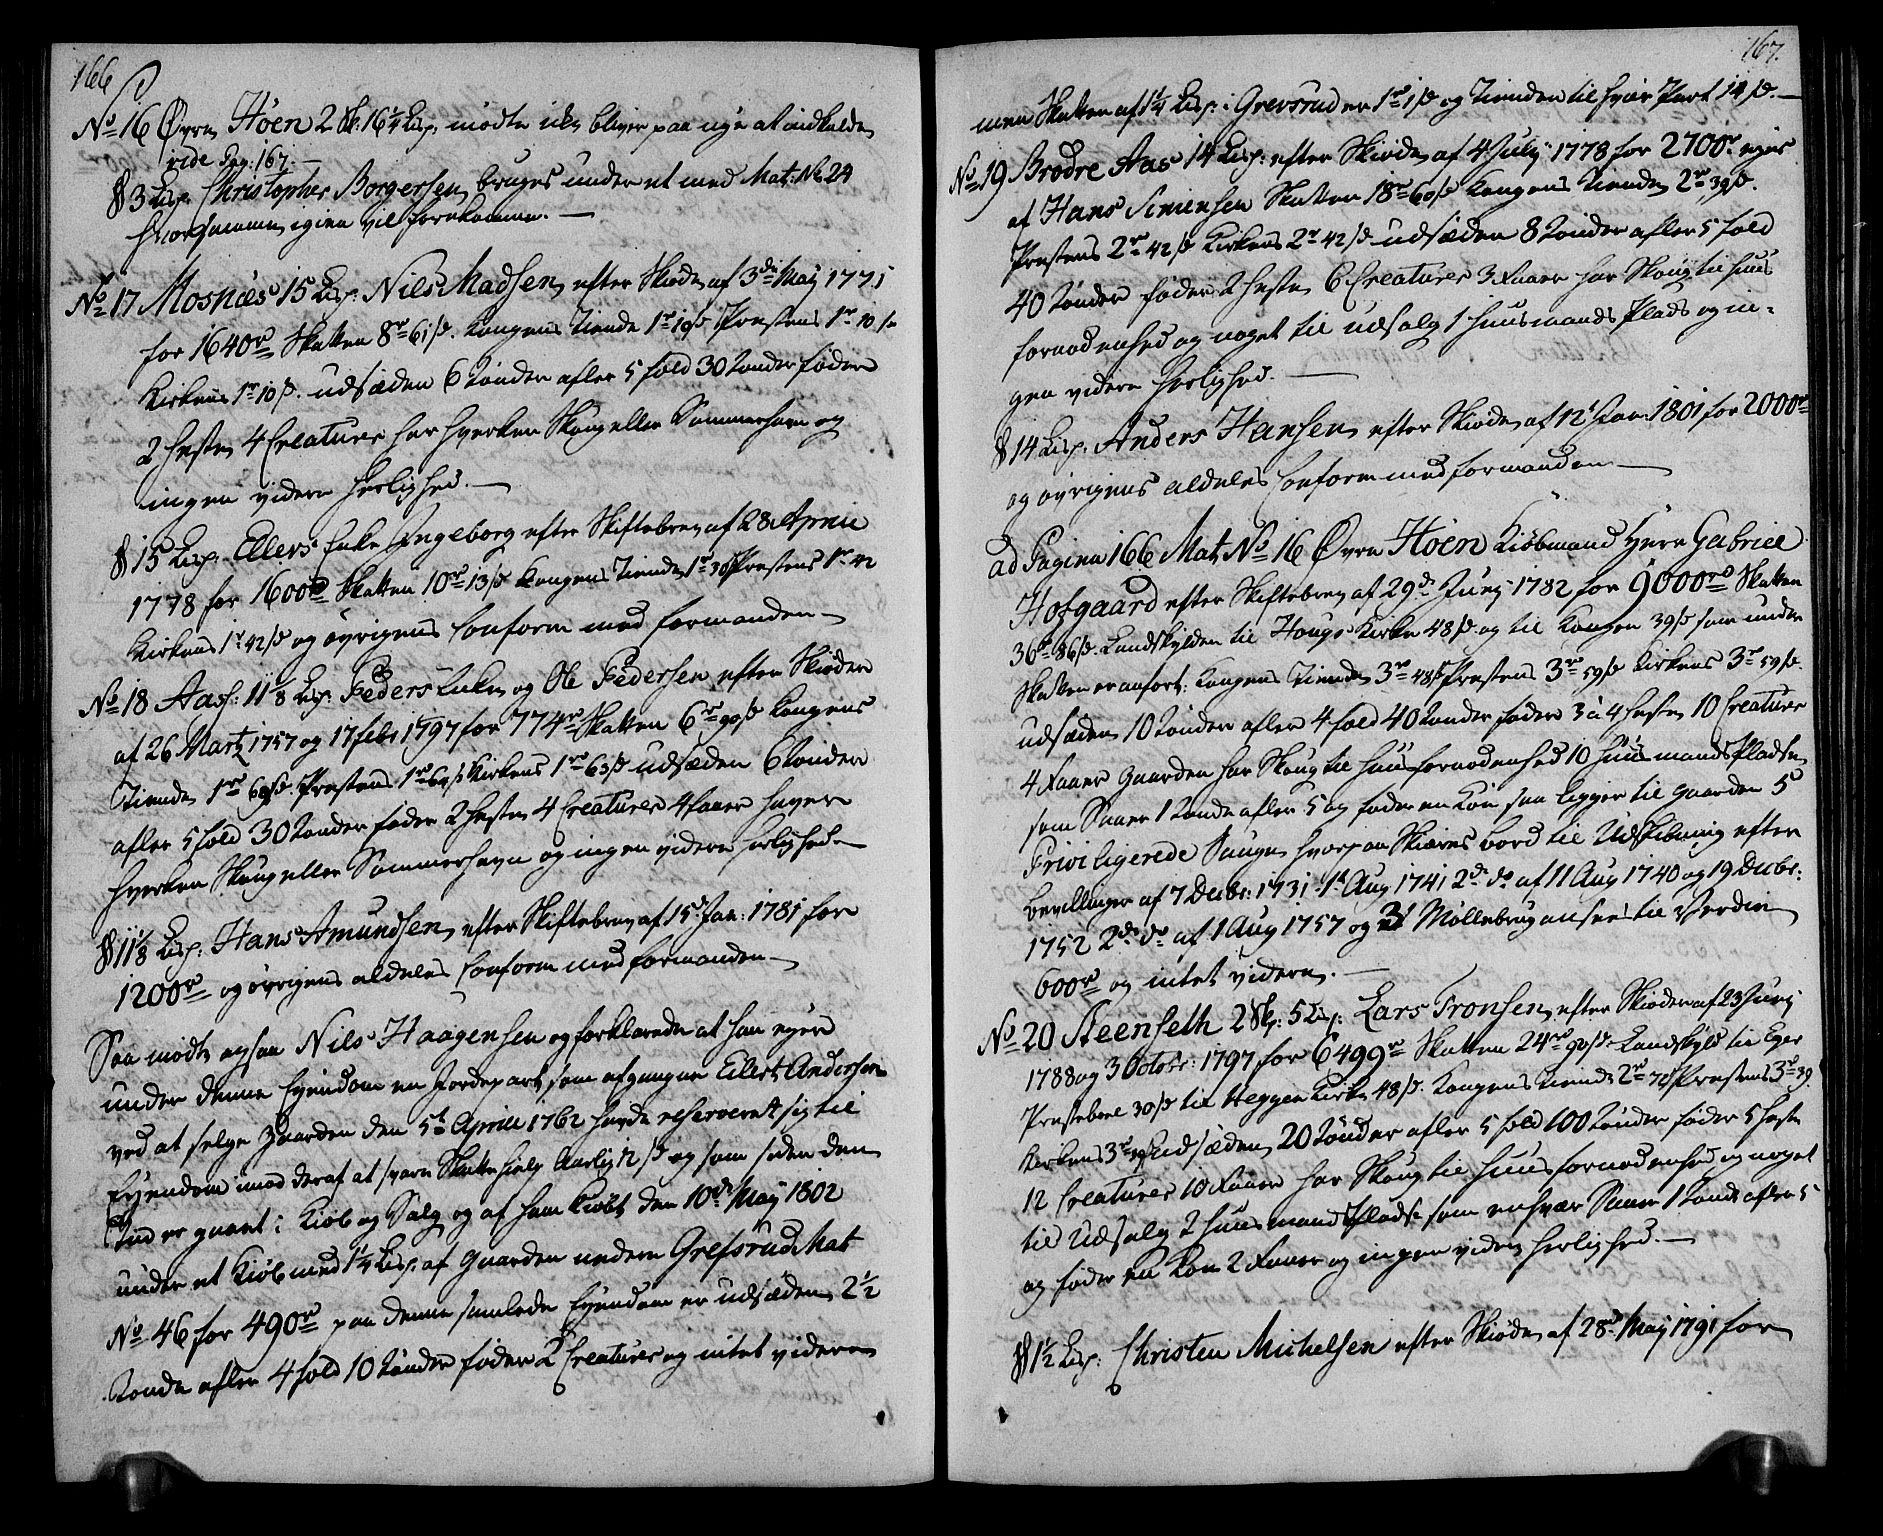 166
No 16 Øvre Hoen 2 Sk. 16 1/4 Lisp. mødte ikke bliver paa nye at indkalde
vide Pag: 167. —
§ 3 Lisp. Christopher Borgersen, bruges under et med Mat: No 24
hvor samme igien vil forekomme. —
No 17 Mosnæs 15 Lisp: Niels Madsen efter Skiøde af 3de May 1775
for 1640 rd Skatten 8 rd 61 s. Kongens Tiende 1 rd 19 s Prestens 1 rd 10 s
Kirkens 1 rd 10 s. udsæden 6 Tønder afler 5 fold 30 Tønder føder
2 heste 4 Creature har hverken Skoug eller Sommerhavn og
ingen videre herlighed. —
§ 15 Lisp. Ellers Enke Ingeborg efter Skiftebrev af 28 April
1778 for 1600 rd Skatten 10 rd 13 s Kongens Tiende 1 rd 30 s Prestens 1 rd 42
Kirkens 1 rd 42 s og øvrigens Conform med formanden —
No 18 Aas: 11 1/8 Lisp. Peders Enke og Ole Pedersen efter Skiøder
af 26 Martz 1757 og 17 febr 1797 for 774 rd Skatten 6 rd 90 s Kongens
Tiende 1 rd 69 s. Prestens 1 rd 69 s Kirkens 1 rd 63 s udsæden 6 Tønder
afler 5 fold 30 Tønder føder 2 heste 4 Creature 4 faaer haver
hverken Skoug eller Sommerhavn og ingen videre herlighed —
§ 11 1/8 Lisp: Hans Amundsen efter Skiftebrev af 15d Jan: 1781 for
1200 rd og øvrigens aldeles Conform med formanden —
Saa mødte ogsaa Niels Haagensen og forklarede at han eyer
under denne Eyendom en Jordepart som afgangne Ellert Andersen
ved at selge gaarden den 5te April 1762 havde reserveret sig til
Eyendom imod deraf at svare Skattehielp Aarlig 12 s og som siden den
Tid er gaaet i Kiøb og Salg og af ham kiøbt den 10de May 1802
under et Kiøb med 1 1/4 Lisp. af Gaarden nedere Grefsrud Mat
No 46 for 490 rd paa denne samlede Eyendom er udsæden 2 1/2
Tønde afler 4 fold 10 Tønder føder 2 Creature og intet videre
167.
men Skatten af 1 1/4 Lisp: i Grevsrud er 1 rd 1 s og Tienden til hver Part 14 s. —
No 19 Brødre Aas 14 Lisp: efter Skiøde af 4 July 1778 for 2700 rd eyes
af Hans Simensen Skatten 18 rd 60 s Kongens Tiende 2 rd 39 s.
Prestens 2 rd 42 s Kirkens 2 rd 42 s udsæden 8 Tønder afler 5 fold
40 Tønder føder 2 heste 6 Creature 3 Faaer har Skoug til huus
fornødenhed og noget til udsalg 1 huusmands Plads og in-
gen videre herlighed. —
§ 14 Lisp. Anders Hansen efter Skiøde af 12t Jan: 1801 for 2000 rd
og øvrigens aldeles Conform med formanden —
ad Pagina 166 Mat No 16 Øvre Hoen Kiøbmand Herr Gabriel
Hofgaard efter Skiftebrev af 29d Juny 1782 for 9000 rd Skatten
36 rd 86 s. Landskylden til Hougs Kirke 48 s og til Kongen 39 s som under
Skatten er anført: Kongens Tiende 3 rd 48 s Prestens 3 rd 59 s Kirkens 3 rd 59 s.
udsæden 10 Tønder afler 4 fold 40 Tønder føder 3 à 4 heste 10 Creature
4 Faaer Gaarden har Skoug til huusfornødenhed 10 Huusmands Pladse
som Saaer 1 Tønde afler 5 og føder en Koe saa ligger til gaarden 5
Priviligerede Sauge hvorpaa Skiæres bord til Udskibning efter
bevillinger af 7 Decbr: 1731. 1te Aug 1741 2de do af 11 Aug 1740 og 19 Decbr:
1752 2de do af 1 Aug 1757 og 3 Møllebrug ansees til Verdie
600 rd og intet videre. —
No 20 Steenseth 2 Sk: 5 Lisp: Lars Tronsen efter Skiøder af 23 Juny
1788 og 3 Octobr: 1797 for 6499 rd Skatten 24 rd 90 s Landskyld til Eger
Prestebol 30 s til Heggen Kirke 48 s. Kongens Tiende 2 rd 72 s Prestens 3 rd 39
Kirkens 3 rd 39 Udsæden 20 Tønder afler 5 fold 100 Tønder føder 5 heste
12 Creature 10 Faaer har Skoug til huusfornødenhed og noget
til Udsalg 2 huusmands Pladse som enhver Saaer 1 Tønde afler 5
og føder en Koe 2 Faaer og ingen videre herlighed. —
§ 1 1/2 Lisp: Christen Michelsen efter Skiøde af 28d May 1791 for